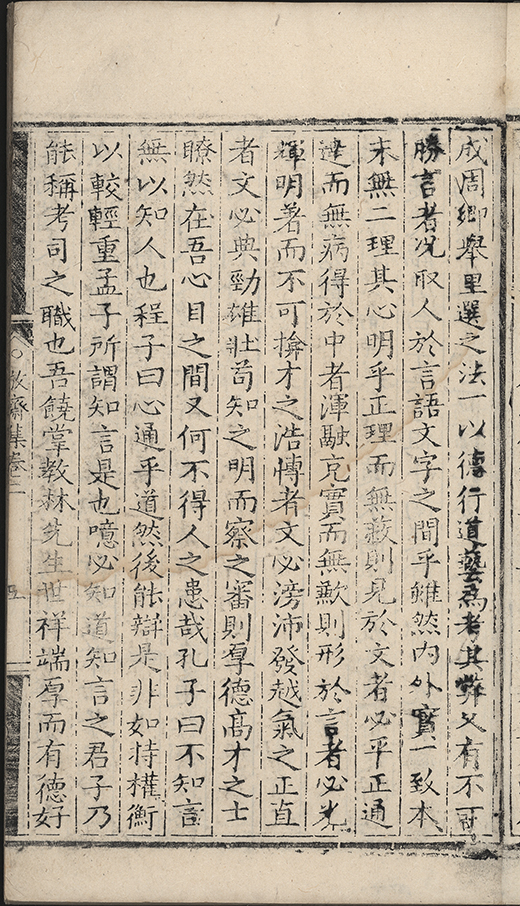 成周鄉舉里選之法一以德行道藝為考其弊又有不可
勝言者况取人於言語文字之間乎雖然内外實一致本
末無二理其心明乎正理而無蔽則見於文者必平正通
達而無病得於中者渾融充實而無歉則形於言者必光
輝明著而不可揜才之浩博者文必滂沛發越氣之正直
者文必典勁雄壯苟知之明而察之審則厚德高才之士
瞭然在吾心目之間又何不得人之患哉孔子曰不知言
無以知人也程子曰心通乎道然後能辯是非如持權衡
以較輕重孟子所謂知言是也噫必知道知言之君子乃
能稱考司之職也吾饒掌教林先生世祥端厚而有德好
敬齋集卷二
五